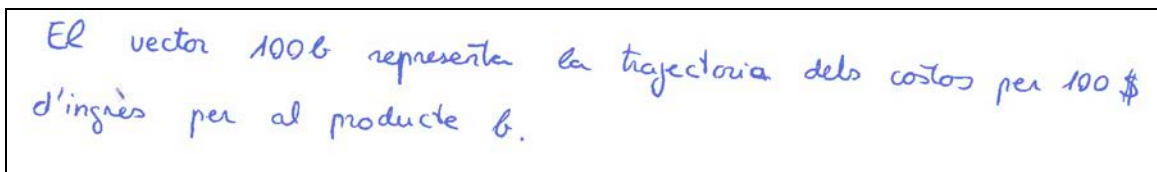 El vector 100b representa la trajectoria dels costos per 100 $
d'ingrès per al producte b.